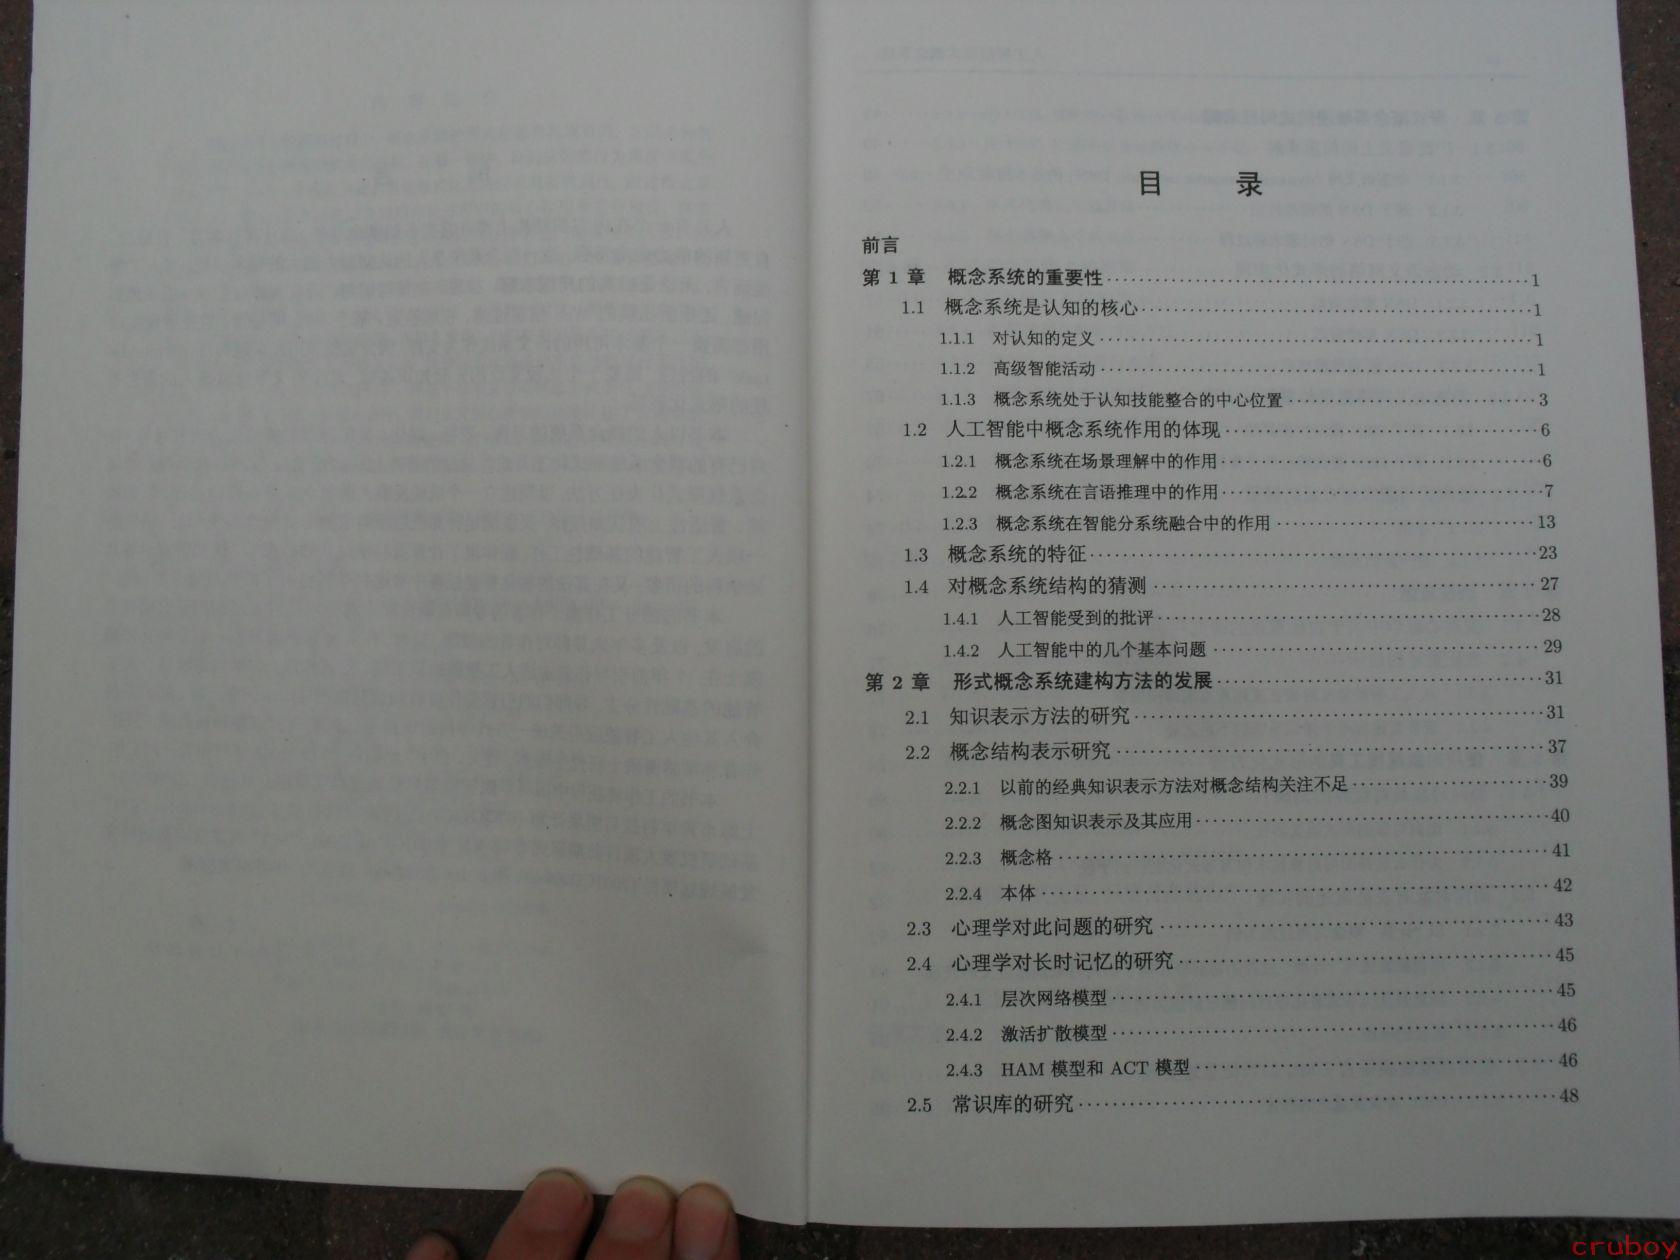 目 录
前言
第 1 章 概念系统的重要性 1
1.1 概念系统是认知的核心 1
1.1.1 对认知的定义 1
1.1.2 高级智能活动 1
1.1.3 概念系统处于认知技能整合的中心位置 3
1.2 人工智能中概念系统作用的体现 6
1.2.1 概念系统在场景理解中的作用 6
1.2.2 概念系统在言语推理中的作用 7
1.2.3 概念系统在智能分系统融合中的作用 13
1.3 概念系统的特征 23
1.4 对概念系统结构的猜测 27
1.4.1 人工智能受到的批评 28
1.4.2 人工智能中的几个基本问题 29
第 2 章 形式概念系统建构方法的发展 31
2.1 知识表示方法的研究 31
2.2 概念结构表示研究 37
2.2.1 以前的经典知识表示方法对概念结构关注不足 39
2.2.2 概念图知识表示及其应用 40
2.2.3 概念格 41
2.2.4 本体 42
2.3 心理学对此问题的研究 43
2.4 心理学对长时记忆的研究 45
2.4.1 层次网络模型 45
2.4.2 激活扩散模型 46
2.4.3 HAM 模型和 ACT 模型 46
2.5 常识库的研究 48
cruboy